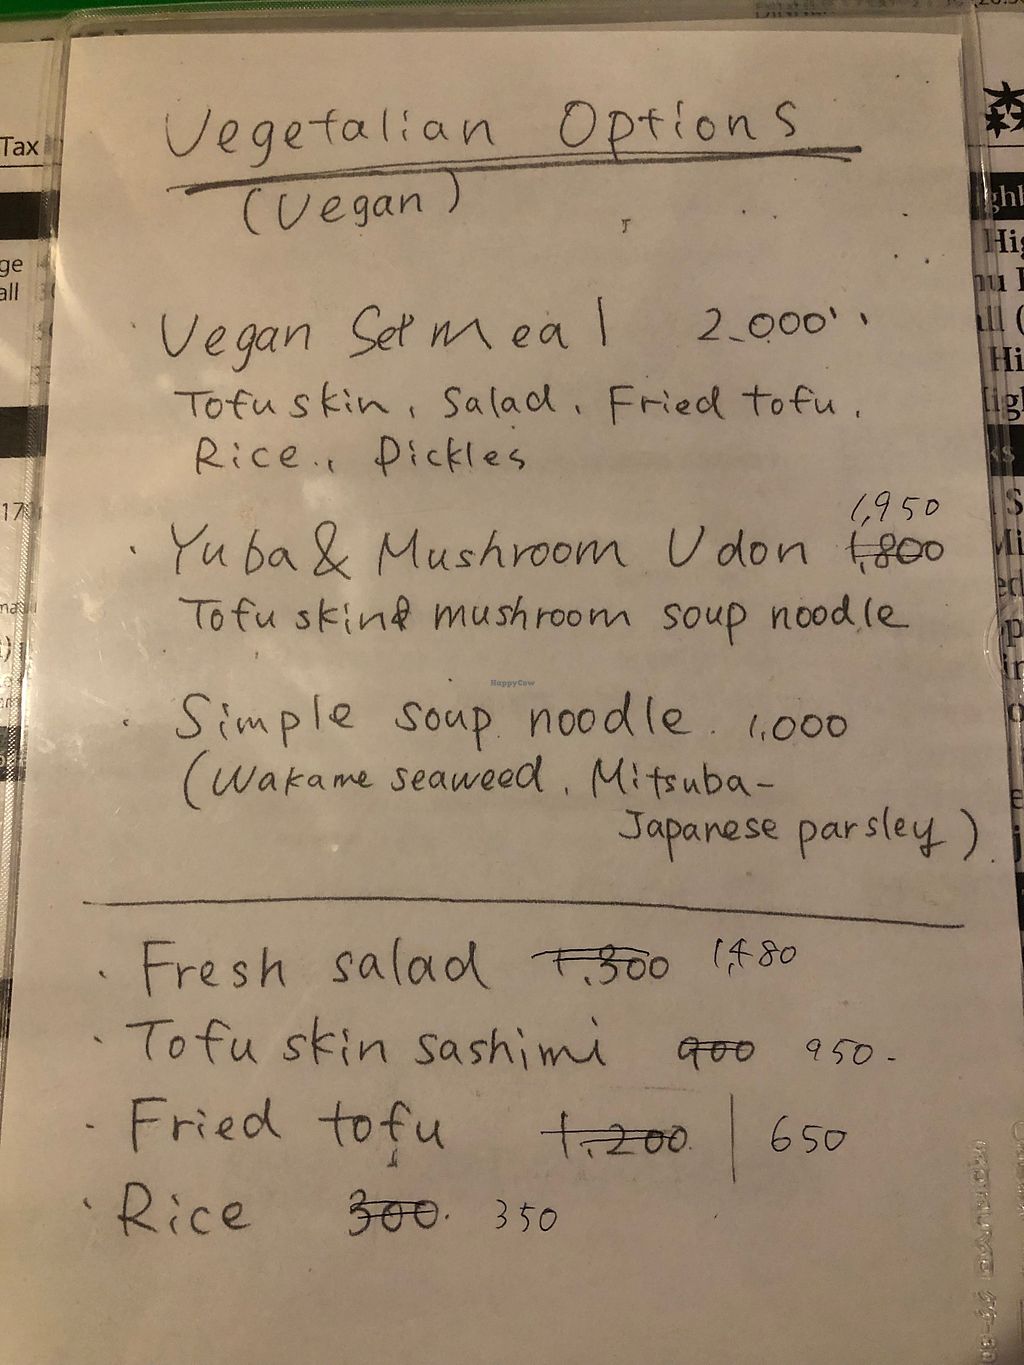 Vegetalian Options
(Vegan)
· Vegan Set meal 2,000''
Tofu skin, Salad, Fried tofu,
Rice, Pickles
1,950
· Yuba & Mushroom Udon 1,800
Tofu skin & mushroom soup noodle
HappyCow
· Simple soup noodle. 1,000
(Wakame seaweed, Mitsuba-
Japanese parsley)
· Fresh salad 1,300 1,480
· Tofu skin sashimi 900 950-
· Fried tofu 1,200 | 650
· Rice 300. 350
Tax